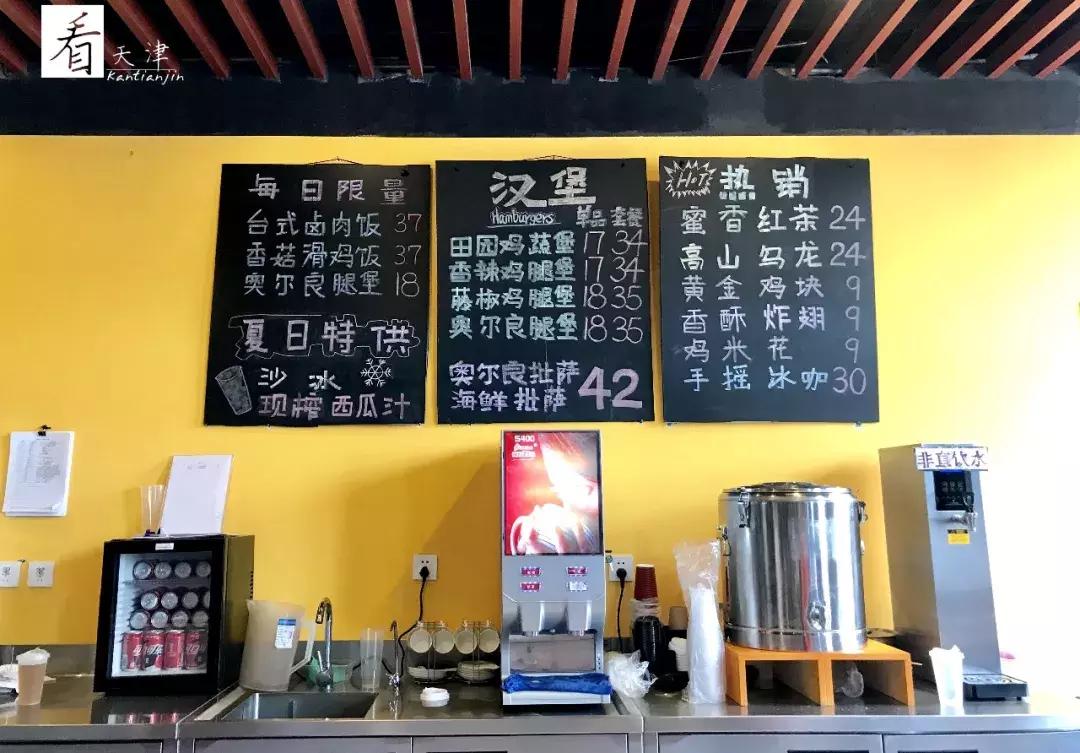 看天津
Kantianjin
每日限量
台式卤肉饭 37
香菇滑鸡饭 37
奥尔良腿堡 18
夏日特供
沙冰
现榨西瓜汁
汉堡
Hamburgers 单品 套餐
田园鸡蔬堡 17 34
香辣鸡腿堡 17 34
藤椒鸡腿堡 18 35
奥尔良腿堡 18 35
奥尔良批萨
海鲜批萨
42
HOT 热销
蜜香红茶 24
高山乌龙 24
黄金鸡块 9
香酥炸翅 9
鸡米花 9
手摇冰咖 30
S400
非直饮水